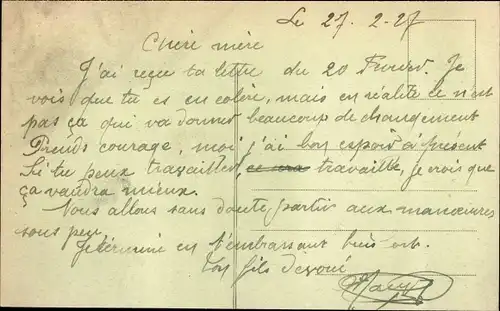 Le 27. 2-27
Chère mère
J'ai reçue ta lettre du 20 Février. Je
vois que tu es en colère, mais en réalité ce n'est
pas ça qui va donner beaucoup de changement
Prends courage, moi j'ai bon espoir à présent
Si tu peux travailler, travaille, je crois que
ça vaudra mieux.
Nous allons sans doute partir aux manœuvres
sous peu.
Je termine en t'embrassant bien fort.
Ton fils dévoué